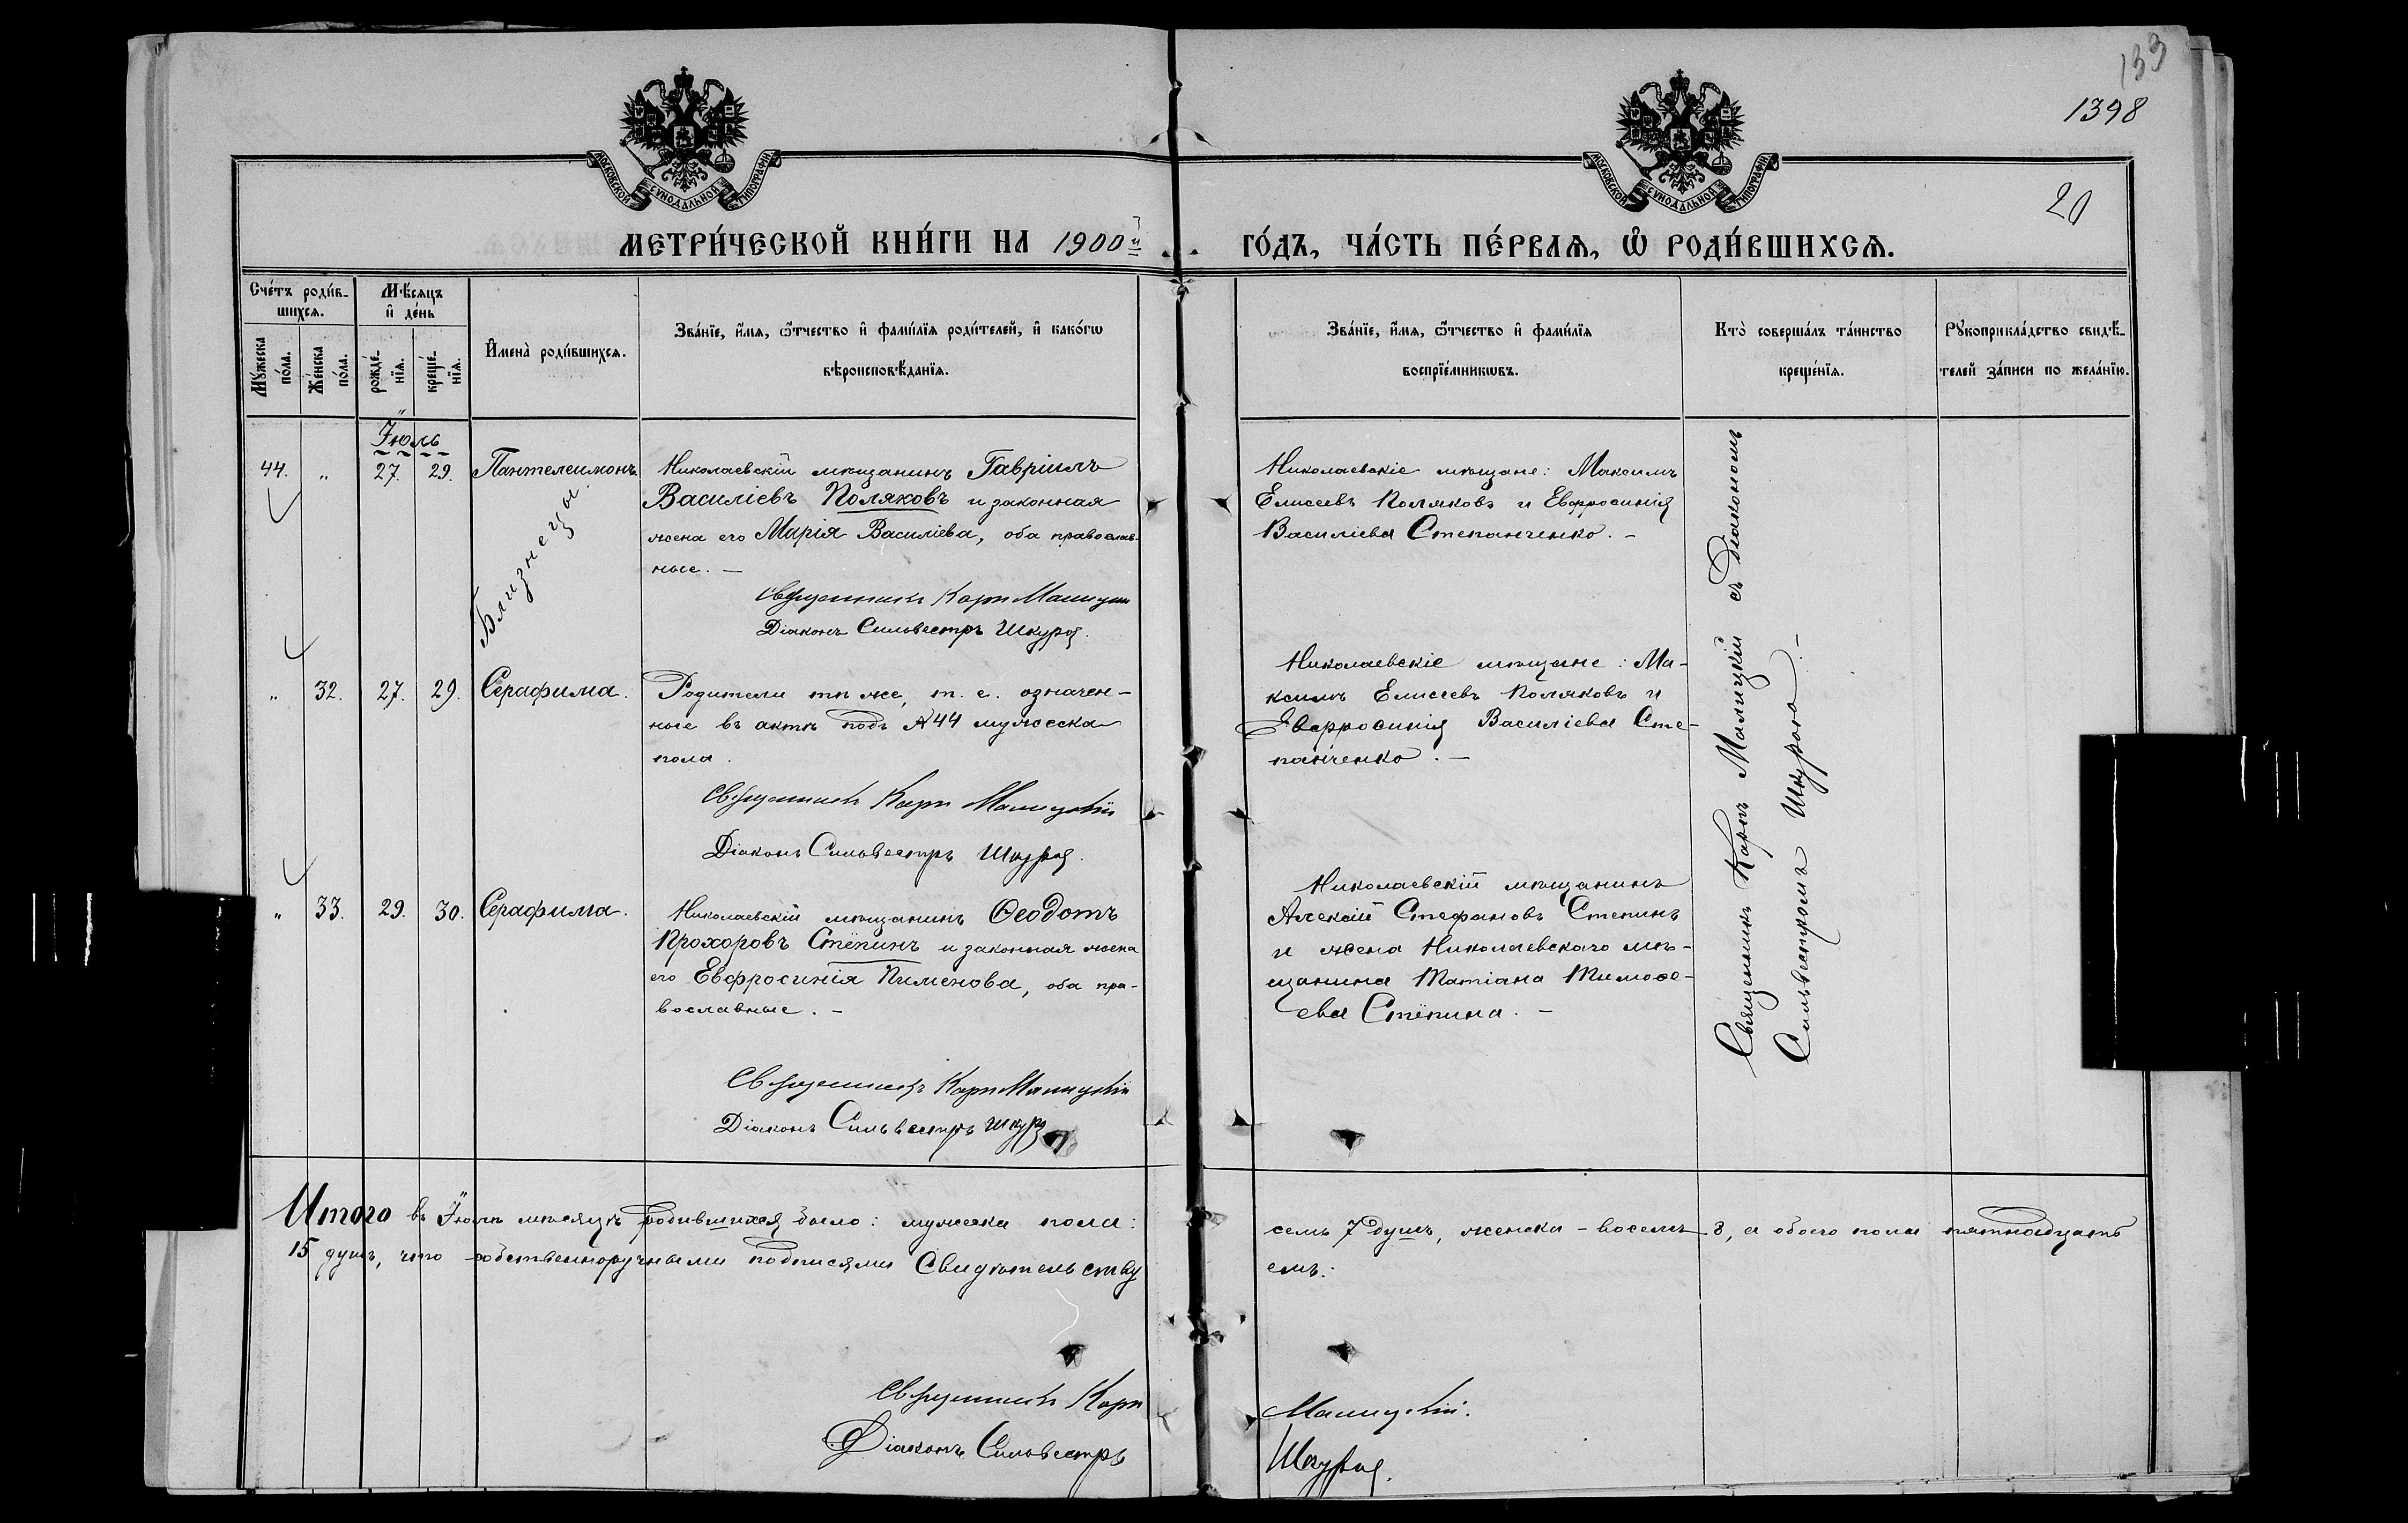 133
1398
20
МОСКОВСКОЙ СѴНОДАЛЬНОЙ ТИПОГРАФІИ
МОСКОВСКОЙ СѴНОДАЛЬНОЙ ТИПОГРАФІИ
МЕТРИ́ЧЕСКОЙ КНИ́ГИ НА 1900й ГО́ДЪ, ЧА́СТЬ ПЕ́РВАѦ, Ѽ РОДИ́ВШИХСѦ.
Сче́тъ роди́в-
шихсѧ.
Мꙋ́жеска
по́ла.
Же́нска
по́ла.
Мѣ́сѧцъ
и҆ де́нь
рожде́-
нїѧ.
креще́-
нїѧ.
И҆мена̀ роди́вшихсѧ.
Зва́нїе, и҆́мѧ, ѻ҆́тчество и҆ фами́лїѧ роди́телей, и҆ како́гѡ
вѣроисповѣ́данїѧ.
Зва́нїе, и҆́мѧ, ѻ҆́тчество и҆ фами́лїѧ
воспрїе́мникѡвъ.
Кто̀ соверша́лъ та́инство
креще́нїѧ.
Рꙋкоприкла́дство свидѣ́-
телей за́писи по жела́нїю.
Іюль
44. " 27. 29. Пантелеимонъ.
Близнецы.
Николаевскій мѣщанинъ Гавріилъ
Василіевъ Поляковъ и законная
жена его Марія Василіева, оба православ-
ные. —
Священникъ Карп Малицкій
Діаконъ Сильвестръ Шкура.
Николаевскіе мѣщане: Максимъ
Елисеевъ Поляковъ и Евфросинія
Василіева Степанченко. –
" 32. 27. 29. Серафима.
Родители тѣ же, т. е. означен-
ные въ актѣ подъ № 44 мужеска
пола.
Священникъ Карп Малицкій
Діаконъ Сильвестръ Шкура.
Николаевскіе мѣщане: Ма-
ксимъ Елисеевъ Поляковъ и
Евфросинія Василіева Сте-
панченко. —
" 33. 29. 30. Серафима.
Николаевскій мѣщанинъ Ѳеодотъ
Прохоровъ Стёпинъ и законная жена
его Евфросинія Пименова, оба пра-
вославные. –
Священникъ Карп Малицкій
Діаконъ Сильвестръ Шкура
Николаевскій мѣщанинъ
Алексій Стефановъ Степинъ
и жена Николаевскаго мѣ-
щанина Татіана Тимоѳе-
ева Стёпина. –
Священникъ Карпъ Малицкій съ Діакономъ
Сильвестромъ Шкурою. –
Итого въ Іюлѣ мѣсяцѣ родившихся было: мужеска пола: семь 7 душъ, женска – восемь 8, а обоего пола пятнадцать
15 душъ, что собственноручными подписями Свидѣтельству емъ:
Священникъ Карп Малицкій.
Діаконъ Сильвестръ Шкура.